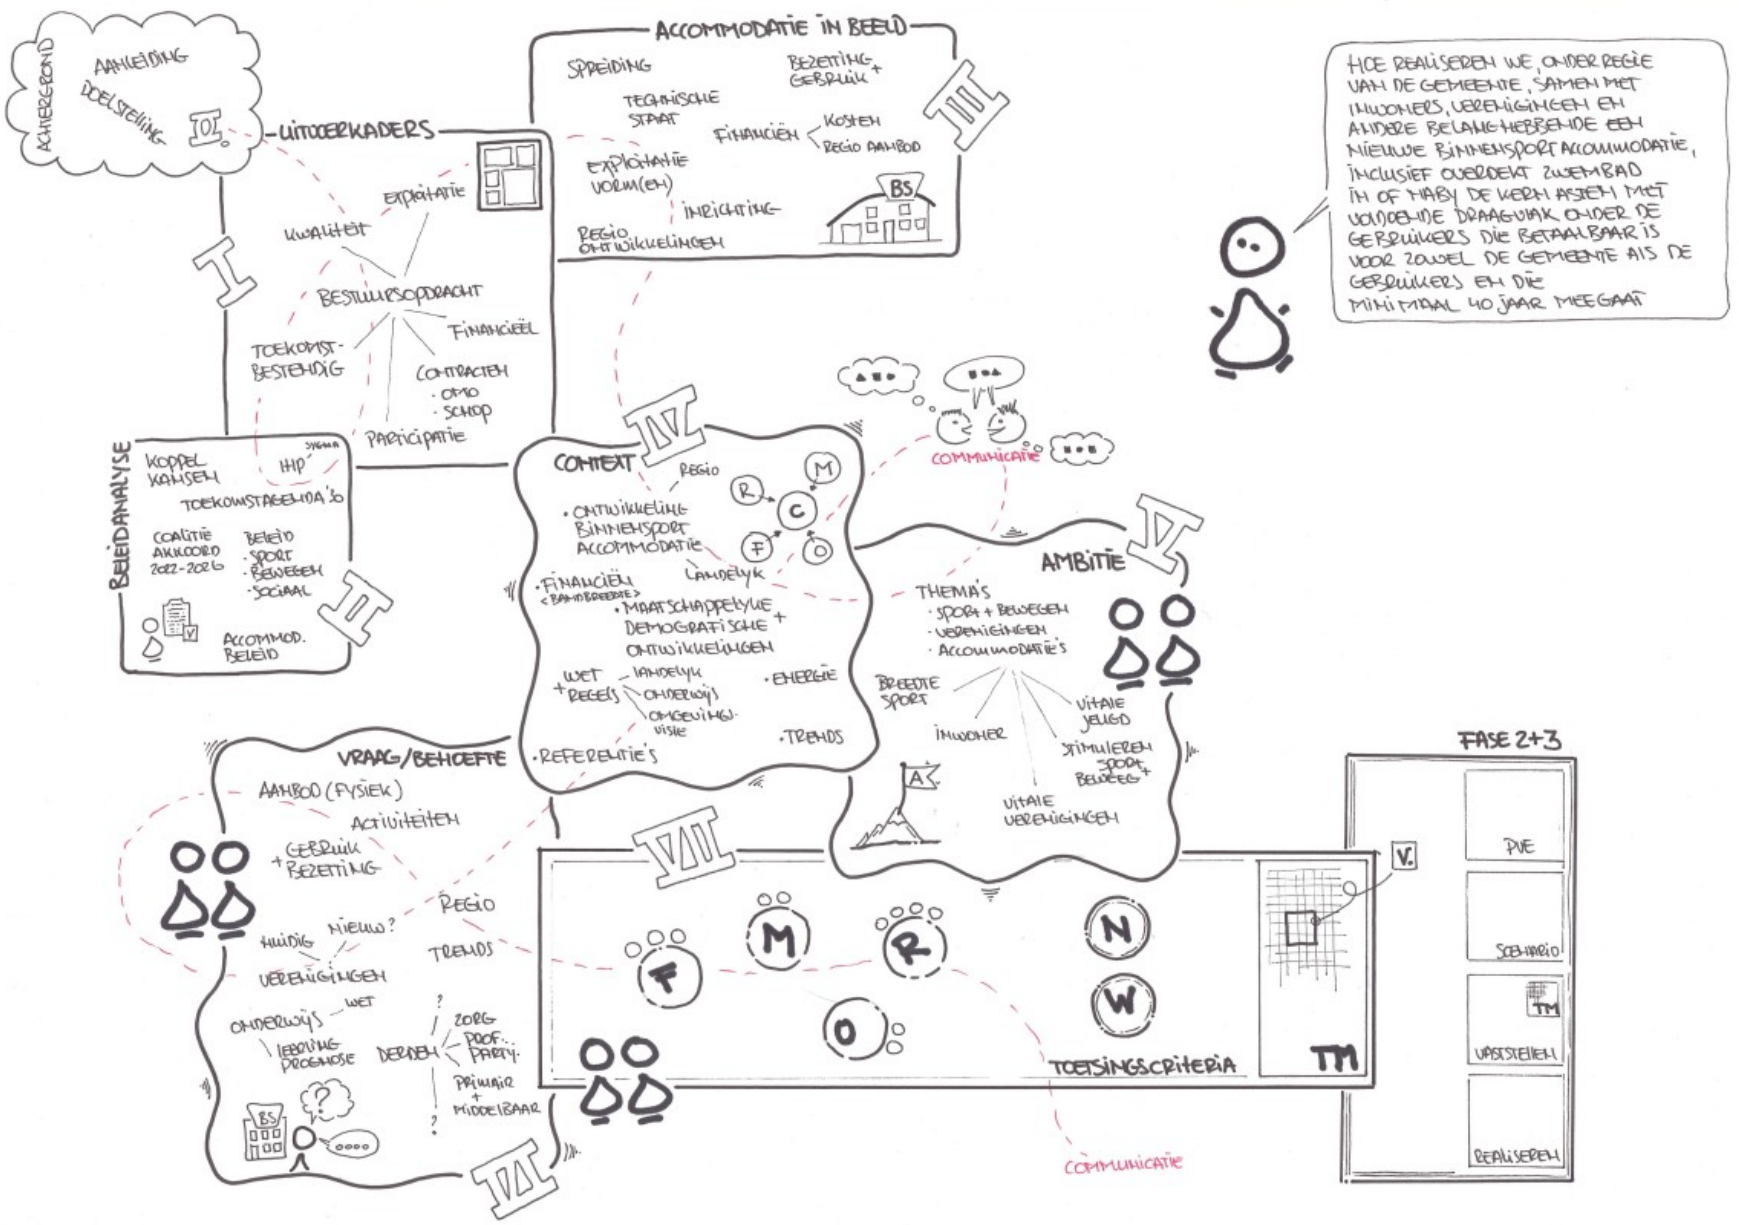 ACHTERGROND
AANLEIDING
DOELSTELLING
0.
UITVOERKADERS
I
EXPLOITATIE
KWALITEIT
BESTUURSOPDRACHT
FINANCIEEL
TOEKOMST-
BESTENDIG
CONTRACTEN
· OMO
· SCHOP
PARTICIPATIE
ACCOMMODATIE IN BEELD
III
SPREIDING
BEZETTING +
GEBRUIK
TECHNISCHE
STAAT
FINANCIËN
KOSTEN
REGIO AANBOD
EXPLOITATIE
VORM(EN)
INRICHTING
REGIO
ONTWIKKELINGEN
BS
HOE REALISEREN WE, ONDER REGIE
VAN DE GEMEENTE, SAMEN MET
INWONERS, VERENIGINGEN EN
ANDERE BELANGHEBBENDE EEN
NIEUWE BINNENSPORTACCOMMODATIE,
INCLUSIEF OVERDEKT ZWEMBAD
IN OF NABY DE KERN ASTEN MET
VOLDOENDE DRAAGVLAK ONDER DE
GEBRUIKERS DIE BETAALBAAR IS
VOOR ZOWEL DE GEMEENTE ALS DE
GEBRUIKERS EN DIE
MINIMAAL 40 JAAR MEEGAAT
BELEIDANALYSE
II
KOPPEL
KANSEN
IHP
TOEKOMSTAGENDA '30
COALITIE
AKKOORD
2022-2026
BELEID
· SPORT
· BEWEGEN
· SOCIAAL
V
ACCOMMOD.
BELEID
IV
CONTEXT
REGIO
M
R
C
F
O
· ONTWIKKELING
BINNENSPORT
ACCOMMODATIE
LANDELYK
· FINANCIËN
<BANDBREEDTE>
· MAATSCHAPPELYKE
DEMOGRAFISCHE +
ONTWIKKELINGEN
WET
+ REGELS
LANDELYK
ONDERWIJS
OMGEVINGS-
VISIE
· ENERGIE
· TRENDS
· REFERENTIE'S
COMMUNICATIE
V
AMBITIE
THEMA'S
· SPORT + BEWEGEN
· VERENIGINGEN
· ACCOMMODATIE'S
BREEDTE
SPORT
INWONER
VITALE
JEUGD
STIMULEREN
SPORT +
BEWEEG
VITALE
VERENIGINGEN
A
VRAAG/BEHOEFTE
AANBOD (FYSIEK)
ACTIVITEITEN
GEBRUIK
+ BEZETTING
REGIO
TRENDS
HUIDIG
NIEUW?
VERENIGINGEN
WET
ONDERWIJS
LEERLING
PROGNOSE
?
DERDEN
ZORG
PROF...
PARTY.
PRIMAIR
+
MIDDELBAAR
?
BS
?
VI
VII
F
M
R
O
N
W
TOETSINGSCRITERIA
TM
COMMUNICATIE
FASE 2+3
V.
PVE
SCENARIO
TM
VASTSTELLEN
REALISEREN